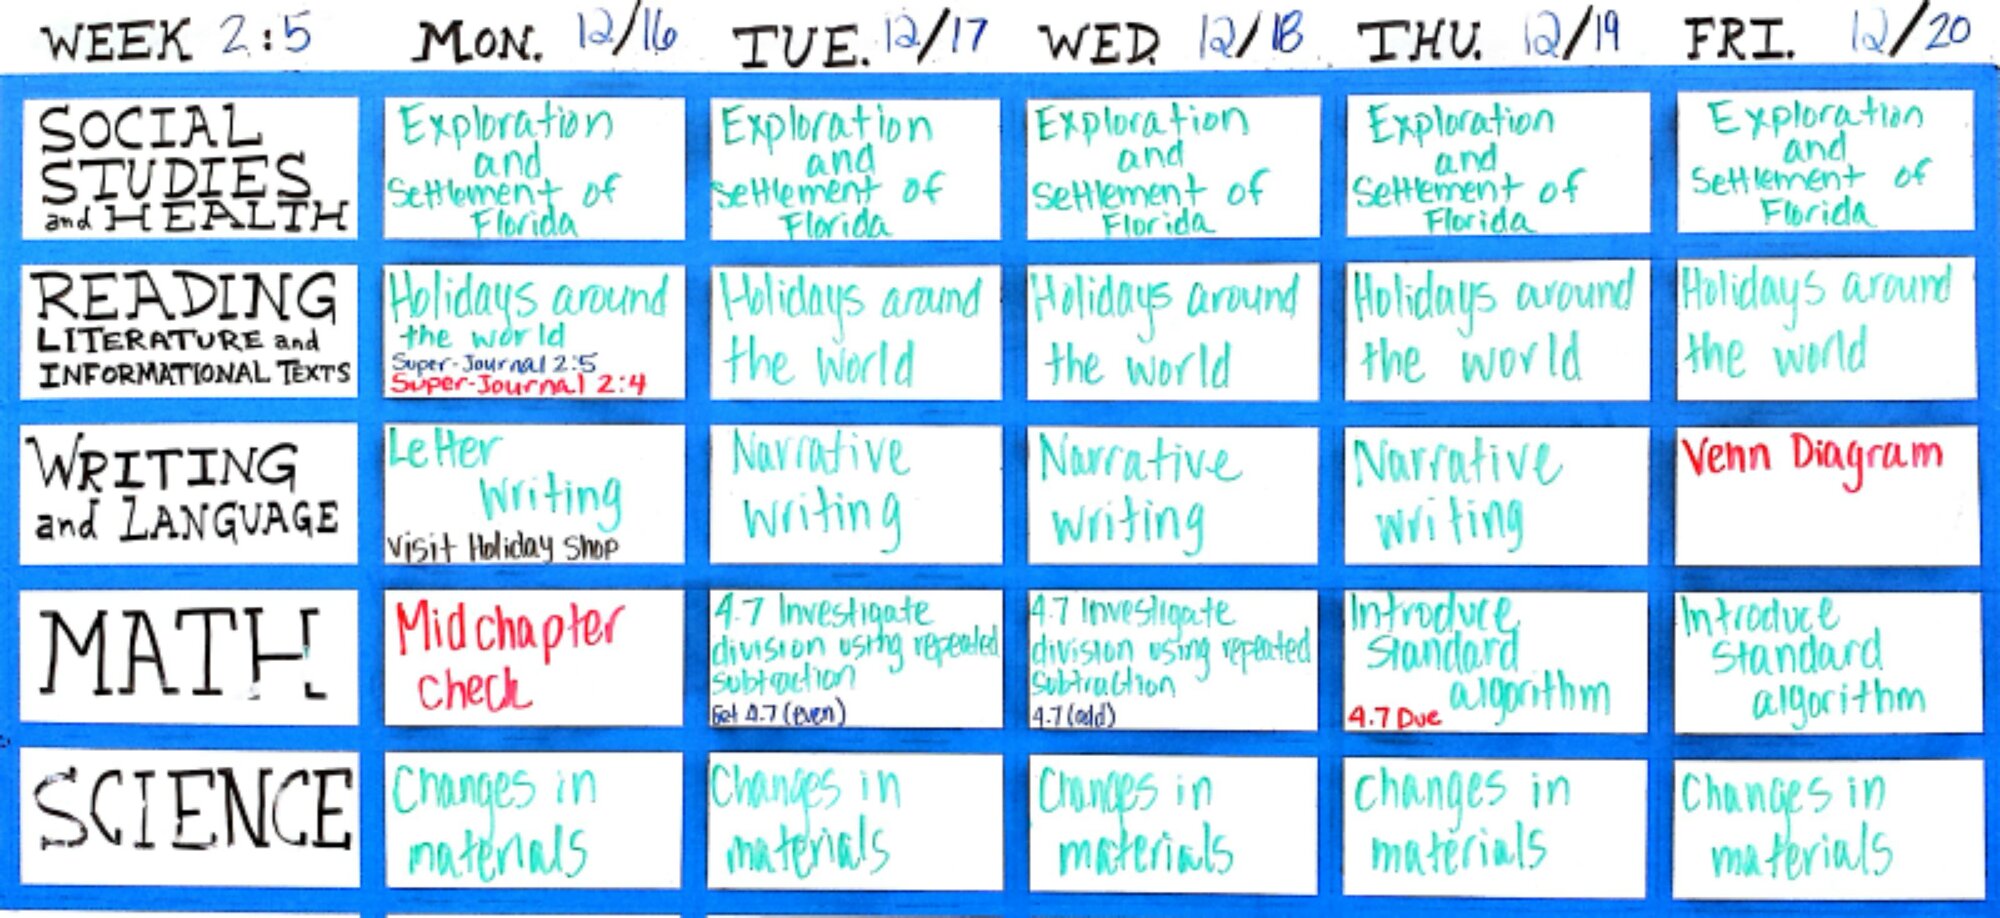 WEEK 2:5 MON. 12/16 TUE. 12/17 WED. 12/18 THU. 12/19 FRI. 12/20
SOCIAL
STUDIES
and HEALTH
Exploration
and
Settlement of
Florida
Exploration
and
Settlement of
Florida
Exploration
and
Settlement of
Florida
Exploration
and
Settlement of
Florida
Exploration
and
Settlement of
Florida
READING
LITERATURE and
INFORMATIONAL TEXTS
Holidays around
the world
Super-Journal 2:5
Super-Journal 2:4
Holidays around
the world
Holidays around
the world
Holidays around
the world
Holidays around
the world
WRITING
and LANGUAGE
Letter
Writing
Visit Holiday Shop
Narrative
writing
Narrative
writing
Narrative
writing
Venn Diagram
MATH
Midchapter
check
4.7 Investigate
division using repeated
subtraction
Get 4.7 (even)
4.7 Investigate
division using repeated
subtraction
4.7 (odd)
Introduce
Standard
algorithm
4.7 Due
Introduce
Standard
algorithm
SCIENCE
Changes in
materials
Changes in
materials
Changes in
materials
Changes in
materials
Changes in
materials